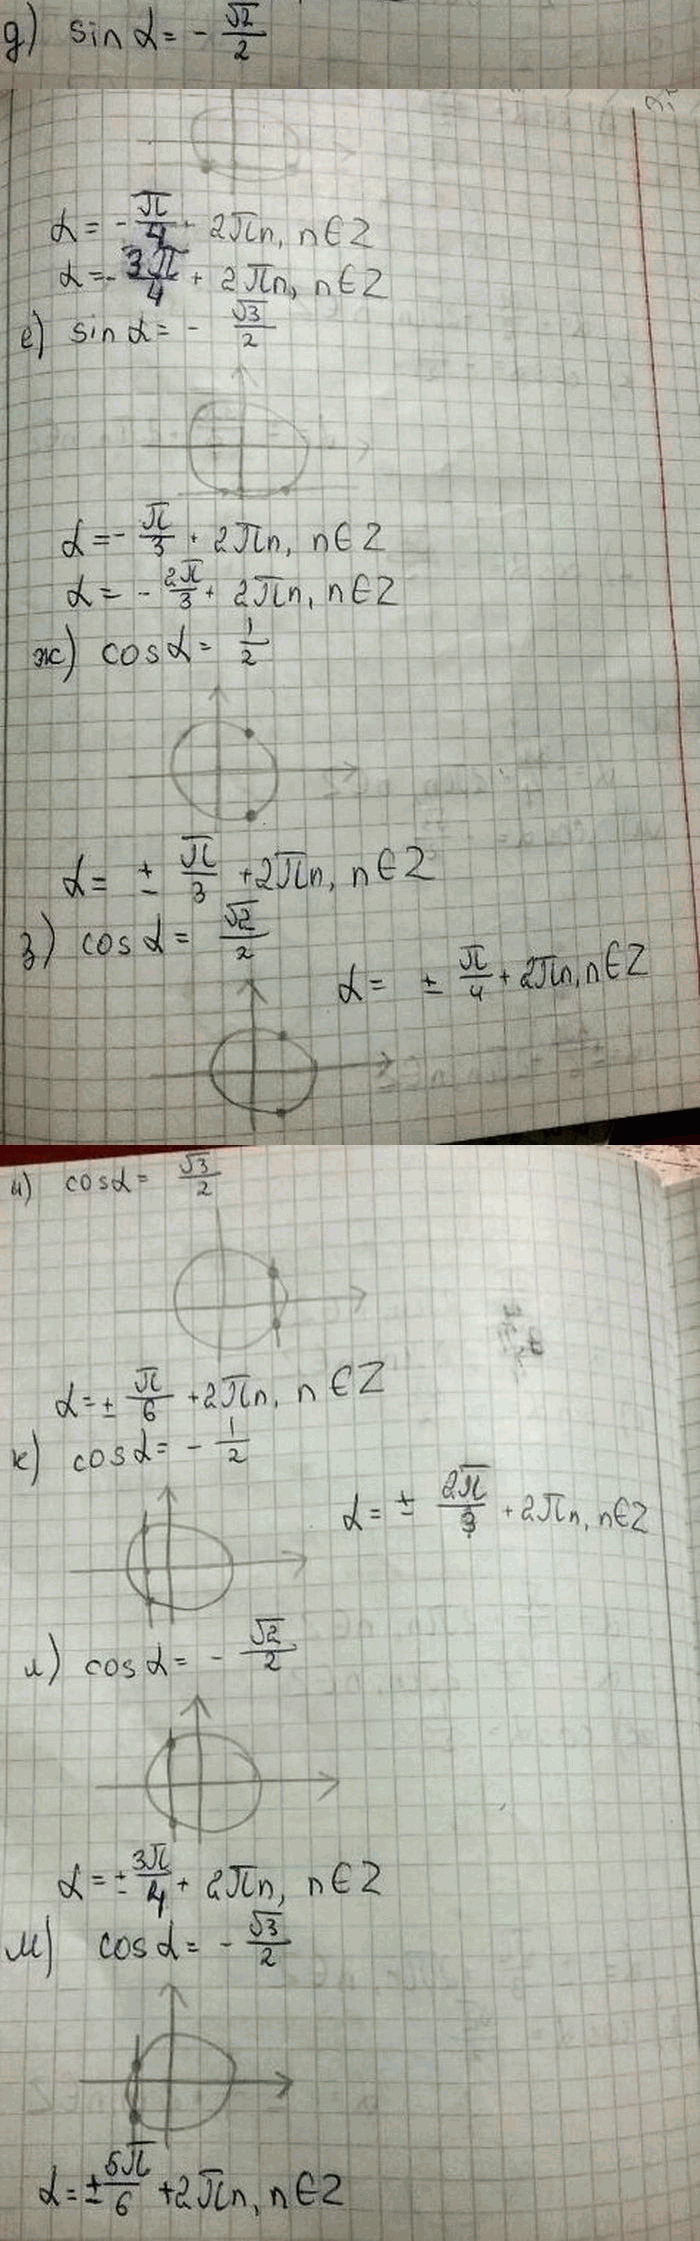 д) sin α = - √2/2
α = - π/4 + 2πn, n∈Z
α = - 3π/4 + 2πn, n∈Z
е) sin α = - √3/2
α = - π/3 + 2πn, n∈Z
α = - 2π/3 + 2πn, n∈Z
ж) cos α = 1/2
α = ± π/3 + 2πn, n∈Z
з) cos α = √2/2
α = ± π/4 + 2πn, n∈Z
и) cos α = √3/2
α = ± π/6 + 2πn, n∈Z
к) cos α = - 1/2
α = ± 2π/3 + 2πn, n∈Z
л) cos α = - √2/2
α = ± 3π/4 + 2πn, n∈Z
м) cos α = - √3/2
α = ± 5π/6 + 2πn, n∈Z